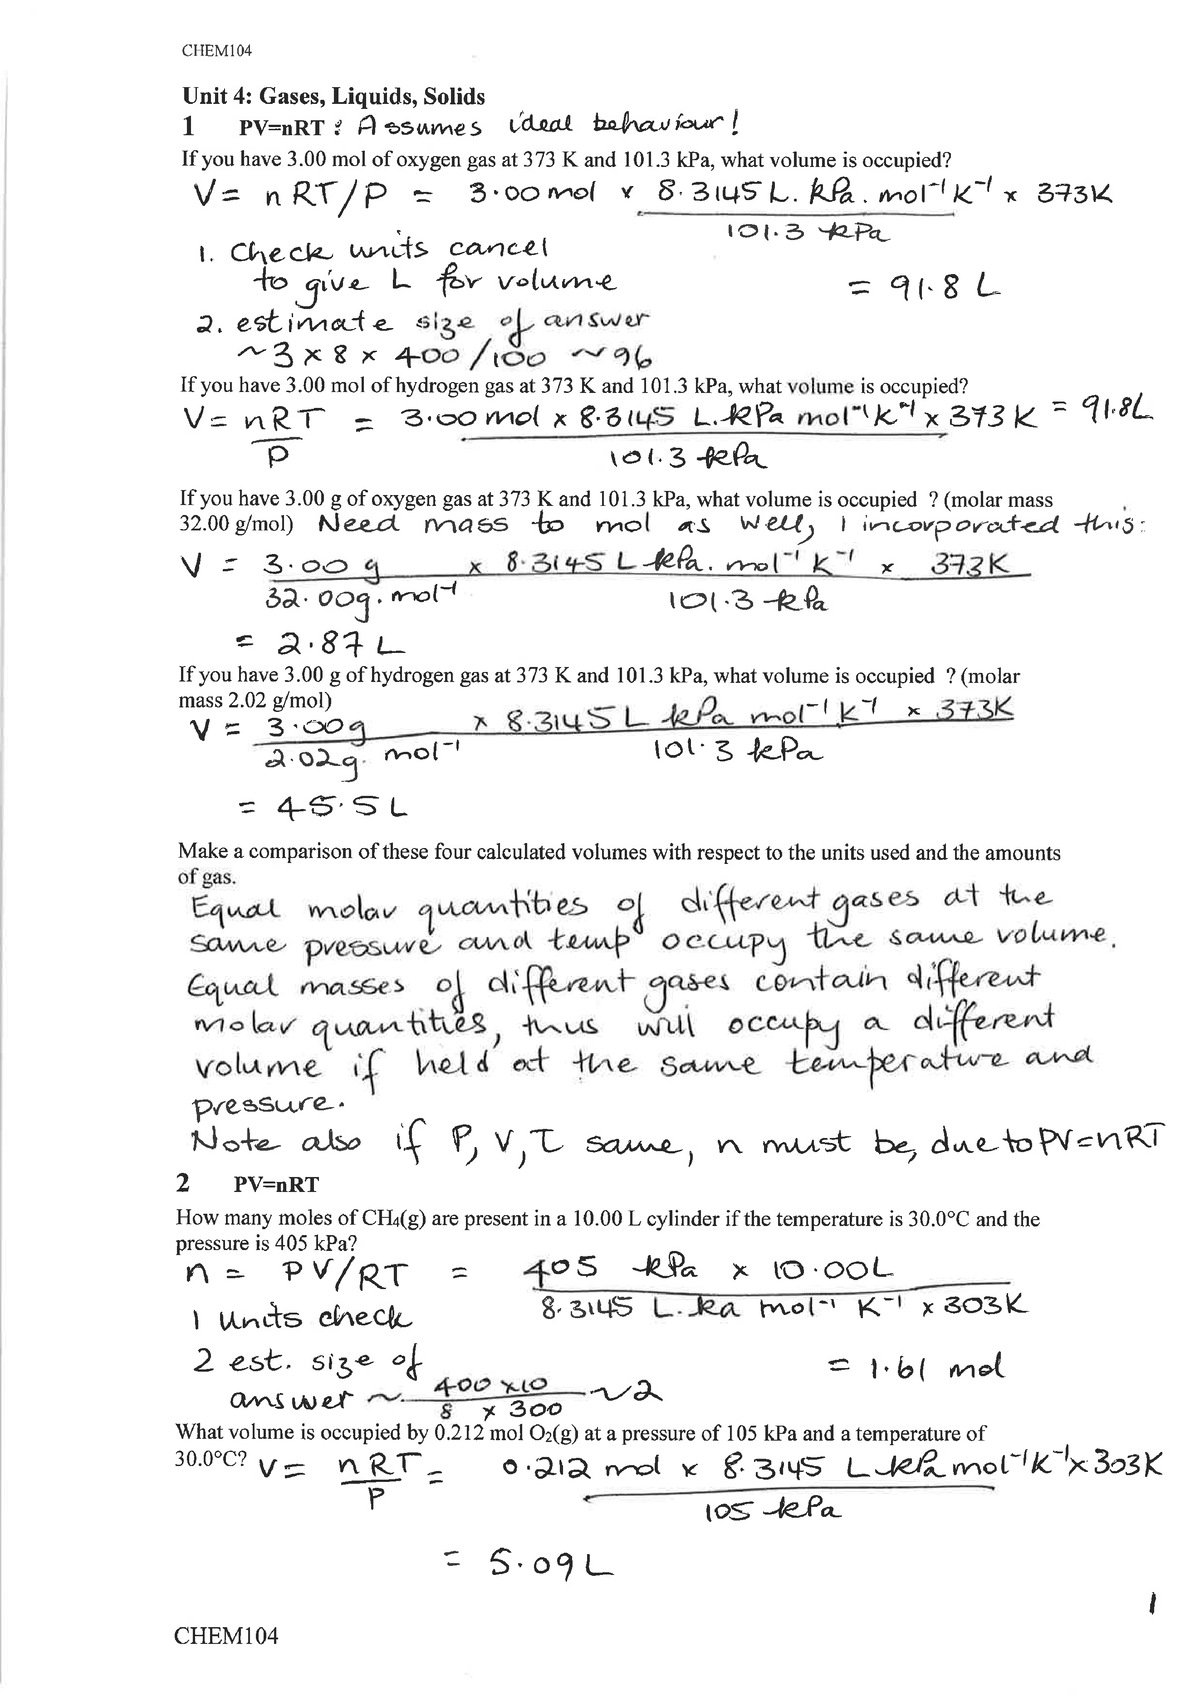 CHEM104
Unit 4: Gases, Liquids, Solids
1 PV=nRT : Assumes ideal behaviour!
If you have 3.00 mol of oxygen gas at 373 K and 101.3 kPa, what volume is occupied?
V = nRT/P = 3.00 mol x 8.3145 L. kPa. mol⁻¹ K⁻¹ x 373K
101.3 kPa
1. Check units cancel
to give L for volume
= 91.8 L
2. estimate size of answer
~3 x 8 x 400/100 ~96
If you have 3.00 mol of hydrogen gas at 373 K and 101.3 kPa, what volume is occupied?
V = nRT = 3.00 mol x 8.3145 L. kPa mol⁻¹ K⁻¹ x 373 K = 91.8L
P 101.3 kPa
If you have 3.00 g of oxygen gas at 373 K and 101.3 kPa, what volume is occupied ? (molar mass
32.00 g/mol) Need mass to mol as well, I incorporated this:
V = 3.00 g x 8.3145 L kPa. mol⁻¹ K⁻¹ x 373K
32.00g. mol⁻¹ 101.3 kPa
= 2.87 L
If you have 3.00 g of hydrogen gas at 373 K and 101.3 kPa, what volume is occupied ? (molar
mass 2.02 g/mol)
V = 3.00g x 8.3145 L kPa mol⁻¹ K⁻¹ x 373K
2.02g. mol⁻¹ 101.3 kPa
= 45.5 L
Make a comparison of these four calculated volumes with respect to the units used and the amounts
of gas.
Equal molar quantities of different gases at the
same pressure and temp occupy the same volume.
Equal masses of different gases contain different
molar quantities, thus will occupy a different
volume if held at the same temperature and
pressure.
Note also if P, V, T same, n must be, due to PV=nRT
2 PV=nRT
How many moles of CH₄(g) are present in a 10.00 L cylinder if the temperature is 30.0°C and the
pressure is 405 kPa?
n = PV/RT = 405 kPa x 10.00L
8.3145 L. ka mol⁻¹ K⁻¹ x 303K
1 Units check
2 est. size of
= 1.61 mol
answer ~ 400 x10 ~2
8 x 300
What volume is occupied by 0.212 mol O₂(g) at a pressure of 105 kPa and a temperature of
30.0°C? V = nRT = 0.212 mol x 8.3145 L kPa mol⁻¹ K⁻¹ x 303K
P 105 kPa
= 5.09 L
1
CHEM104